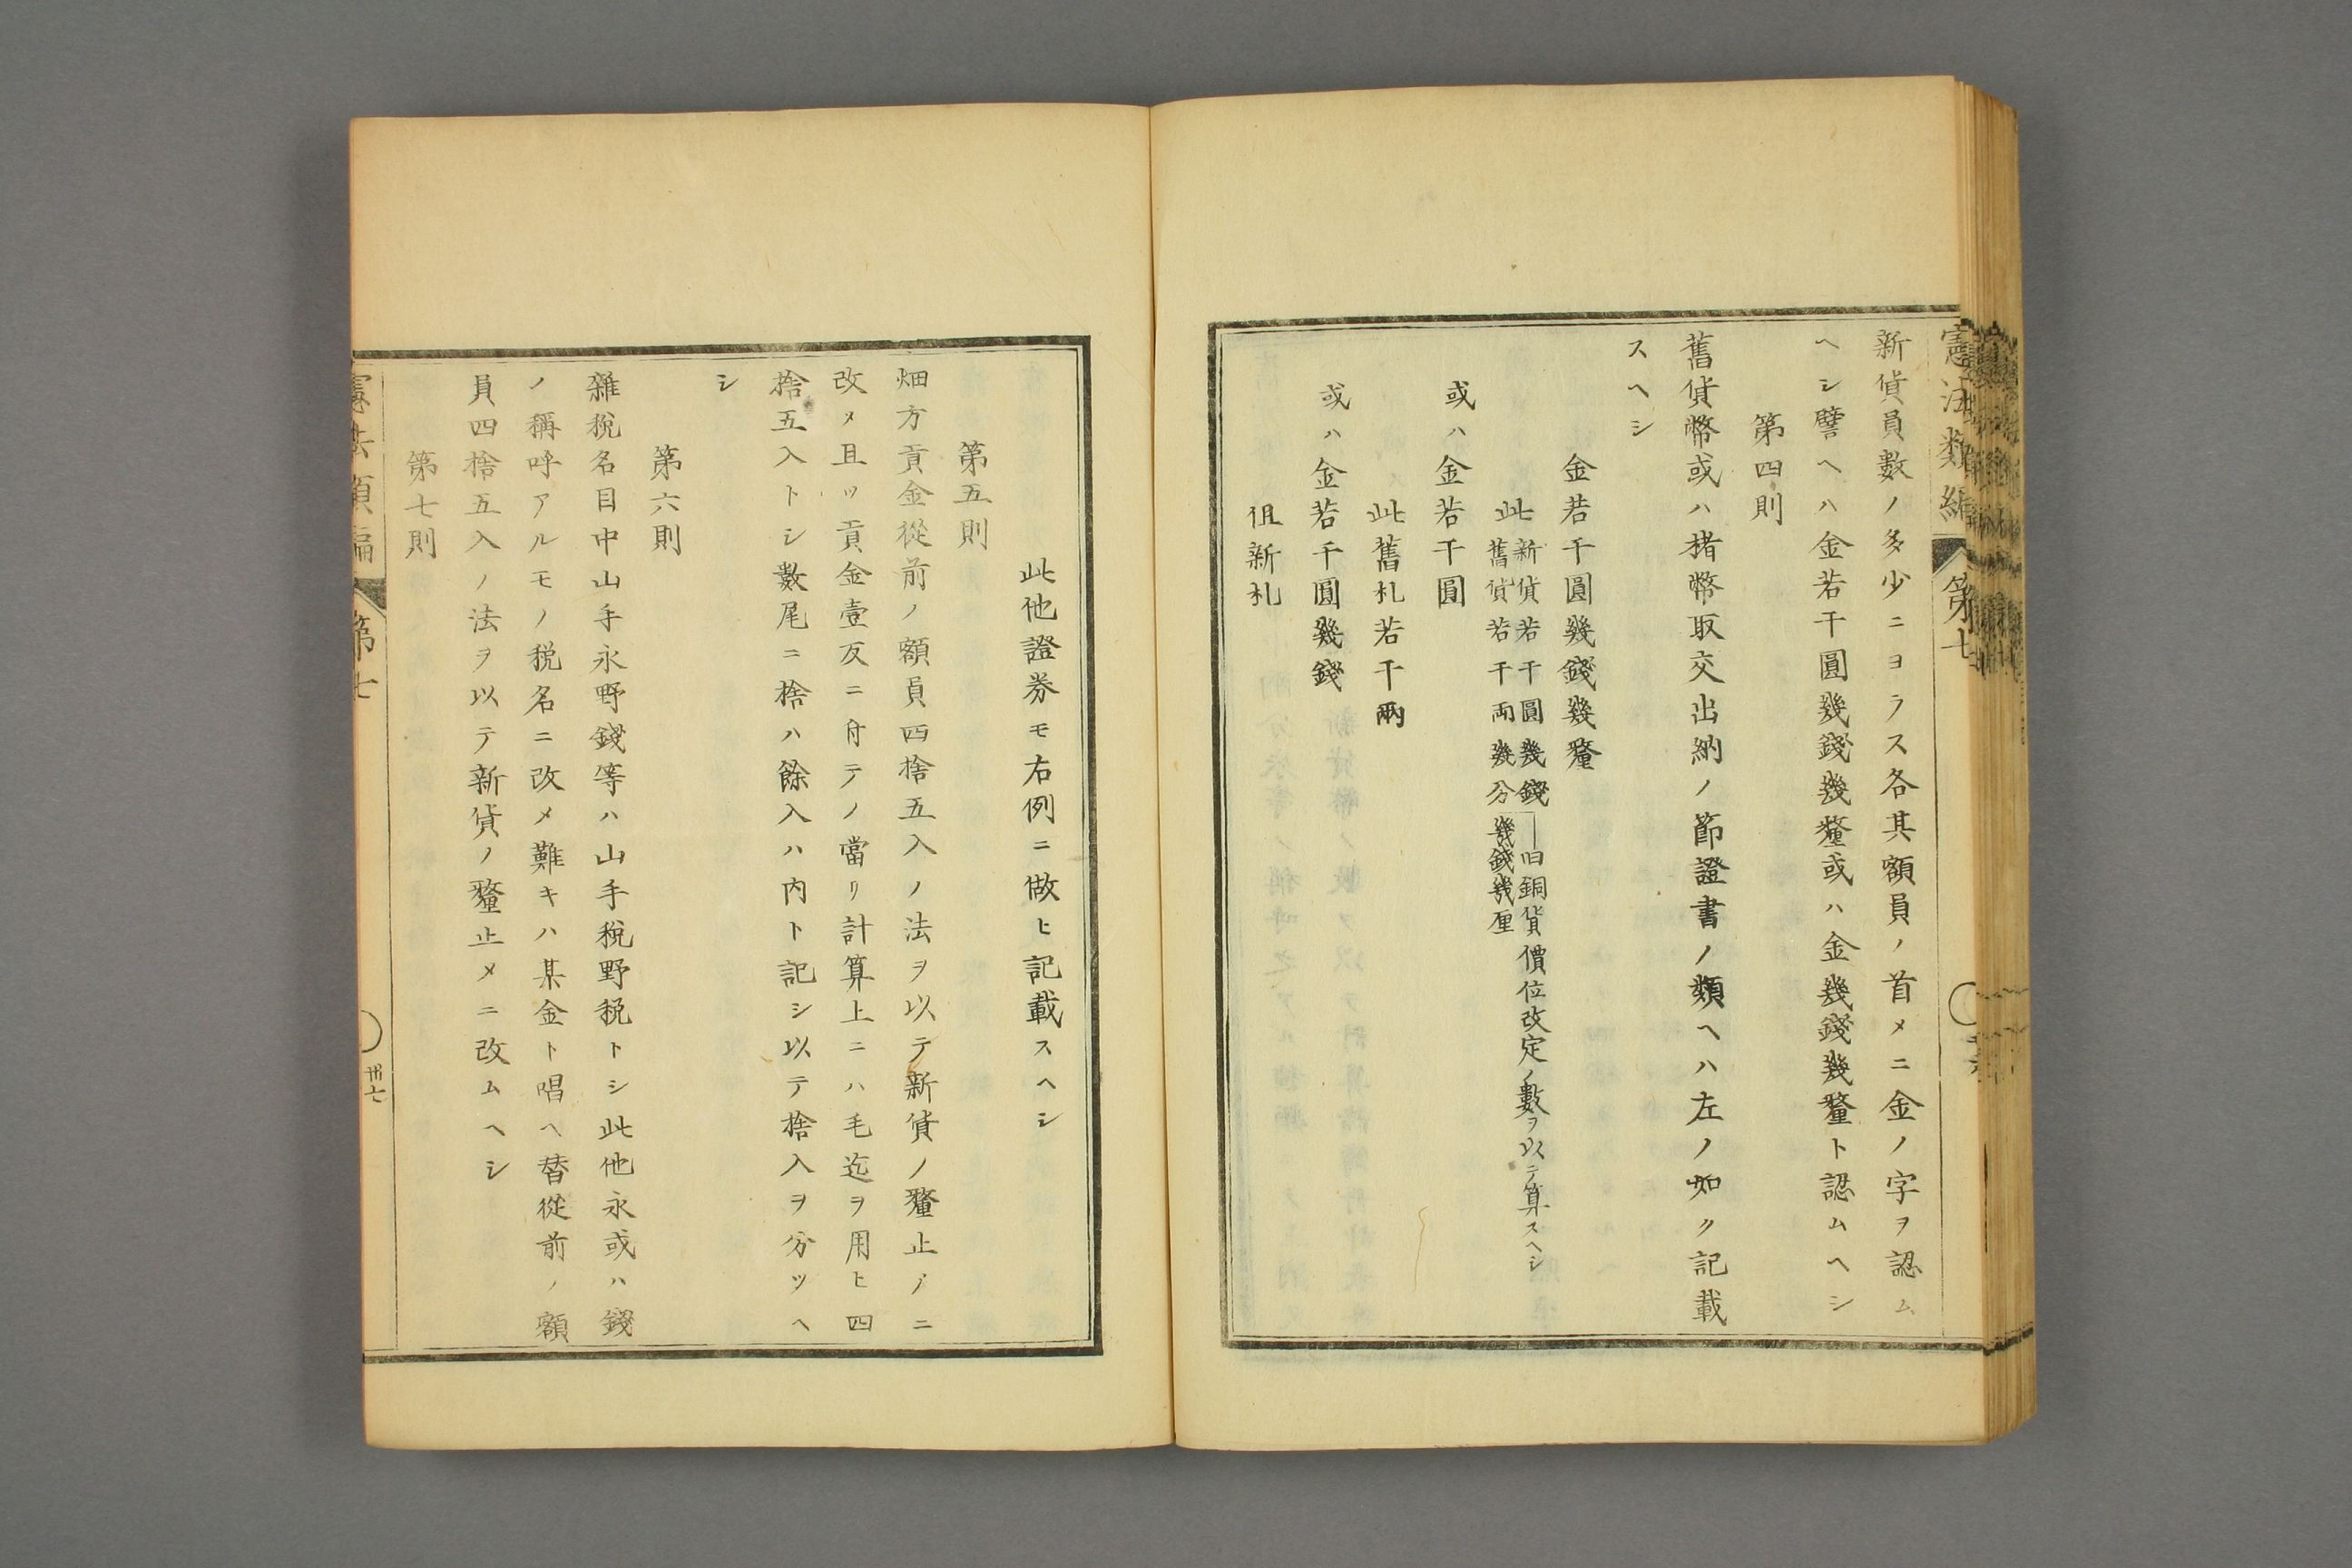 憲法類編 第七
新貨員數ノ多少ニヨラス各其額員ノ首メニ金ノ字ヲ認ム
ヘシ譬ヘハ金若干圓幾錢幾釐或ハ金幾錢幾釐ト認ムヘシ
第四則
舊貨幣或ハ楮幣取交出納ノ節證書ノ類ヘハ左ノ如ク記載
スヘシ
金若干圓幾錢幾釐
此新貨若干圓幾錢
舊貨若干両幾分幾錢幾厘
旧銅貨價位改定ノ數ヲ以テ算スヘシ
或ハ金若干圓
此舊札若干兩
或ハ金若干圓幾錢
但新札
此他證券モ右例ニ做ヒ記載スヘシ
第五則
畑方貢金從前ノ額員四捨五入ノ法ヲ以テ新貨ノ釐止ノニ
改メ且ツ貢金壹反ニ付テノ當リ計算上ニハ毛迄ヲ用ヒ四
捨五入トシ數尾ニ捨ハ餘入ハ内ト記シ以テ捨入ヲ分ツヘ
シ
第六則
雜稅名目中山手永野錢等ハ山手稅野稅トシ此他永或ハ錢
ノ稱呼アルモノ稅名ニ改メ難キハ某金ト唱ヘ替從前ノ額
員四捨五入ノ法ヲ以テ新貨ノ釐止メニ改ムヘシ
第七則
憲法類編 第七
卅七